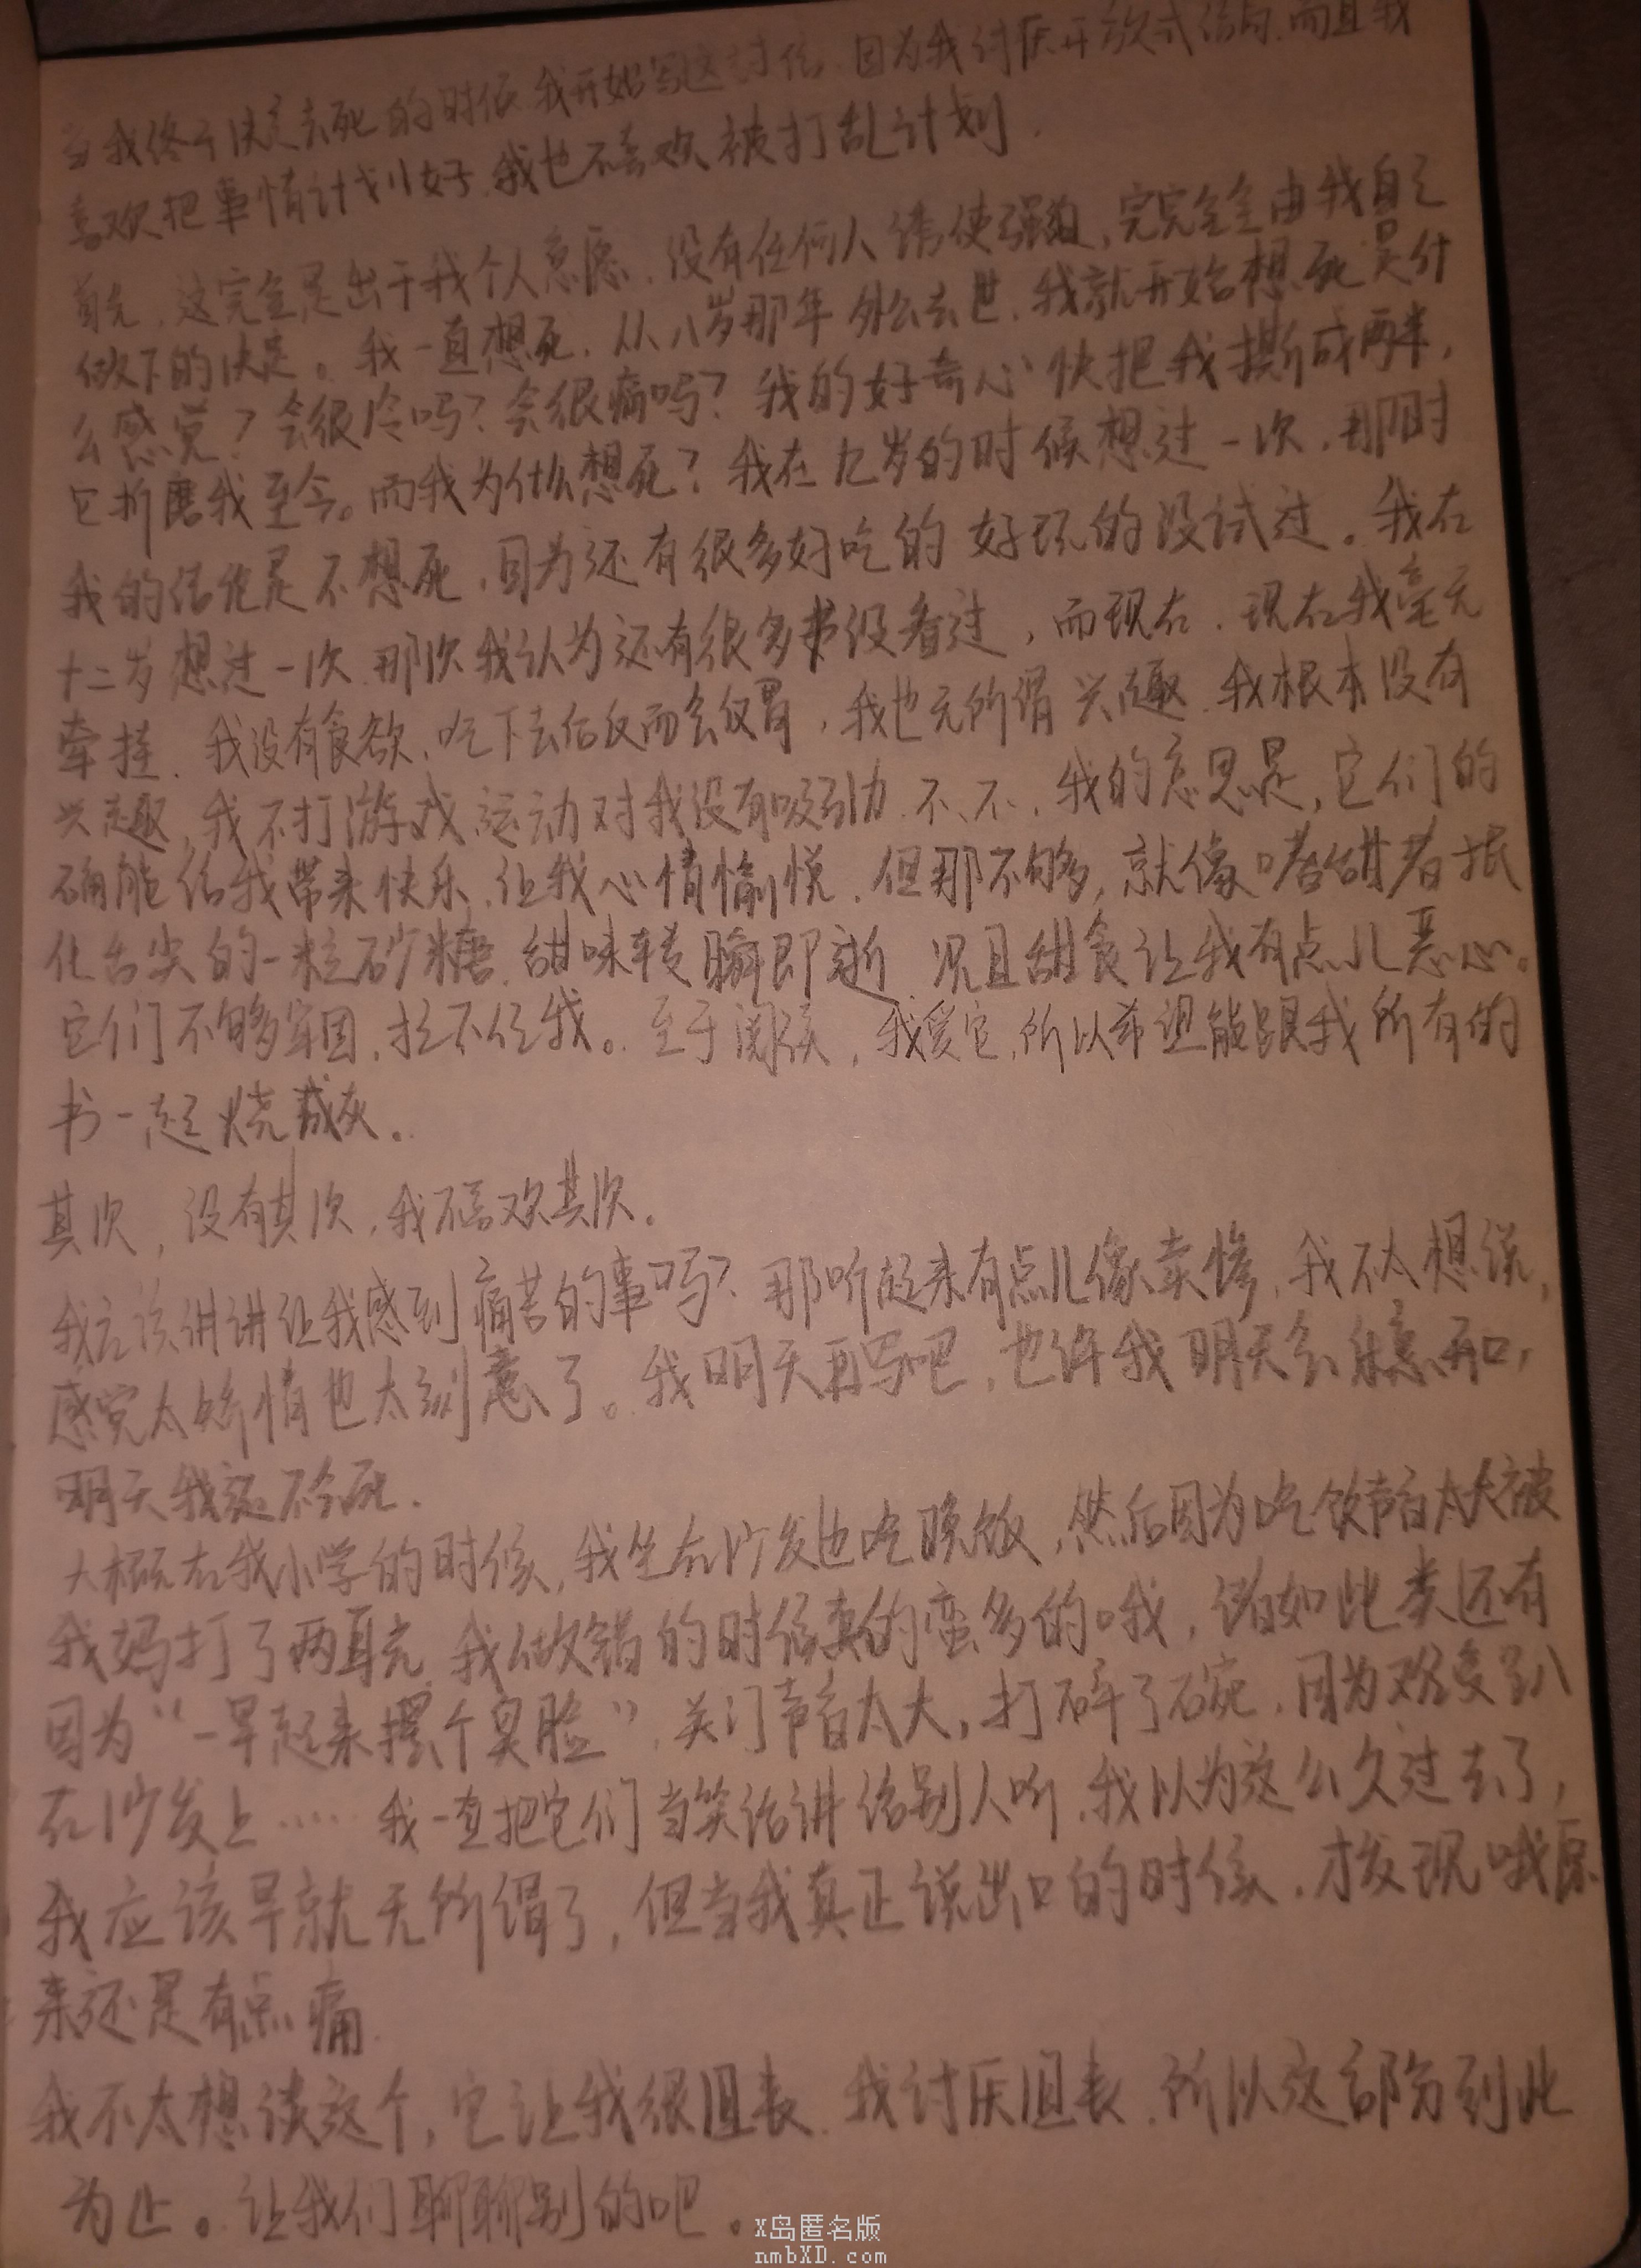 当我终于决定去死的时候,我开始写这封信,因为我讨厌开放式结局,而且我
喜欢把事情计划好,我也不喜欢被打乱计划.
首先,这完全是出于我个人意愿,没有任何人 使强迫,完完全全由我自己
做下的决定。我一直想死,从八岁那年外公去世,我就开始想死是什
么感觉?会很冷吗?会很痛吗?我的好奇心快把我撕成两半,
它折磨我至今。而我为什么想死?我在九岁的时候想过一次,那时
我的结论是不想死,因为还有很多好吃的好玩的没试过。我在
十二岁想过一次,那次我认为还有很多书没看过,而现在.现在我毫无
牵挂.我没有食欲,吃下去后反而会反胃,我也无所谓兴趣.我根本没有
兴趣,我不打游戏,运动对我没有吸引力.不、不,我的意思是,它们的
确能给我带来快乐,让我心情愉悦.但那不够,就像嗜甜者抿
化舌尖的一粒砂糖.甜味转瞬即逝.况且甜食让我有点儿恶心。
它们不够牢固,拉不住我。至于阅读,我爱它,所以希望能跟我所有的
书一起烧成灰.
其次,没有其次,我不喜欢其次.
我应该讲讲让我感到痛苦的事吗?那听起来有点儿像卖惨,我不太想说,
感觉太矫情也太刻意了。我明天再写吧,也许我明天会乐意开口,
明天我还不会死.
大概在我小学的时候,我坐在沙发边吃晚饭,然后因为吃饭声音太大被
我妈打了两耳光.我做错的时候真的蛮多的哦,诸如此类还有
因为“一早起来摆个臭脸”,关门声音太大,打碎了碗,因为难受趴
在沙发上……我一直把它们当笑话讲给别人听,我以为这么久过去了,
我应该早就无所谓了,但当我真正说出口的时候,才发现哦原
来还是有点痛.
我不太想谈这个,它让我很沮丧.我讨厌沮丧.所以这部分到此
为止。让我们聊聊别的吧.
X岛匿名版
nmbXD.com